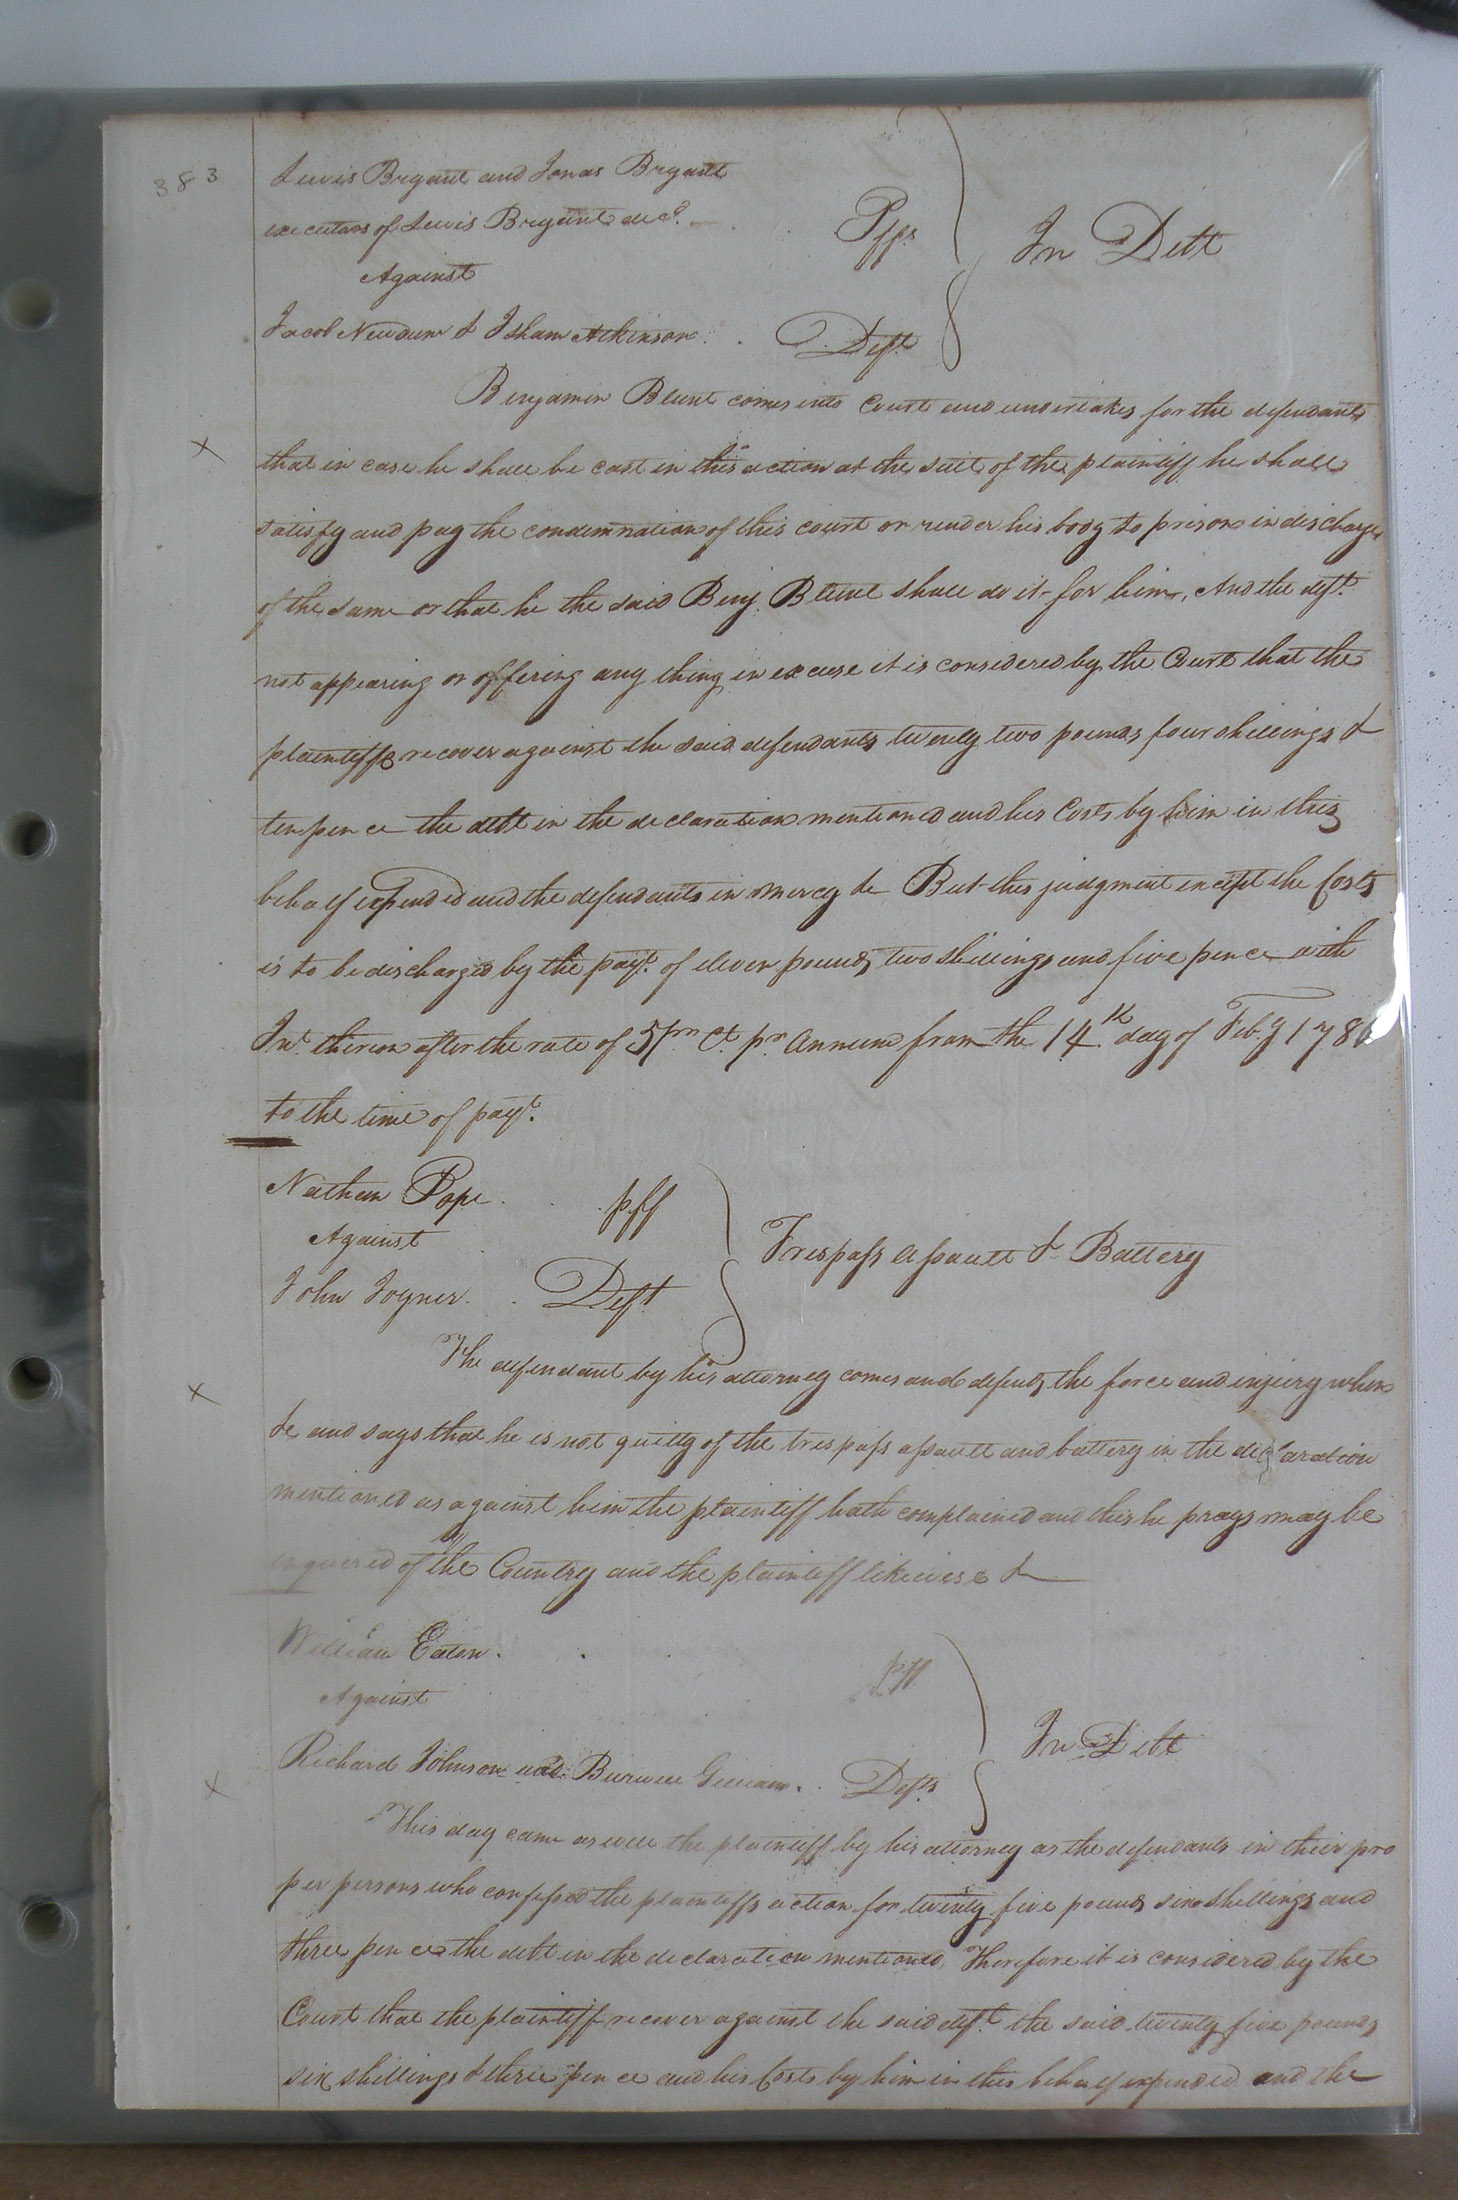 383
Lewis Bryant and Jonas Bryant
executors of Lewis Bryant decd.
Plfs
Against
In Debt
Jacob Newsum & Isham Atkinson
Deft
Benjamin Blunt comes into Court and undertakes for the defendants
that in case he shall be cast in this action at the suit of the plaintiff he shall
satisfy and pay the condemnation of this court or render his body to prison in discharge
of the same or that he the said Benj. Blunt shall do it for him, And the deft.
not appearing or offering any thing in excuse it is considered by the Court that the
plaintiffs recover against the said defendants twenty two pounds four shillings &
ten pence the debt in the declaration mentioned and his Costs by him in this
behalf expended and the defendants in mercy &c But this judgment except the Costs
is to be discharged by the payt. of eleven pounds two shillings and five pence with
Int. thereon after the rate of 5 pr Ct. pr. Annum from the 14th day of Feb.y 178
to the time of payt.
Nathan Pope
plff
Against
Trespass assault & Battery
John Joyner
Deft
The defendant by his attorney comes and defends the force and injury when
&c and says that he is not guilty of the trespass assault and battery in the declaration
mentioned as against him the plaintiff hath complained and this he prays may be
inquired of by the Country and the plaintiff likewise &
William Eaton
plff
Against
In Debt
Richard Johnson and Burwell Gilliam
Defts
This day came as well the plaintiff by his attorney as the defendants in their pro
per persons who confessed the plaintiffs action for twenty five pounds six shillings and
three pence the debt in the declaration mentioned, Therefore it is considered by the
Court that the plaintiff recover against the said deft. the said twenty five pounds
six shillings & three pence and his Costs by him in this behalf expended and the